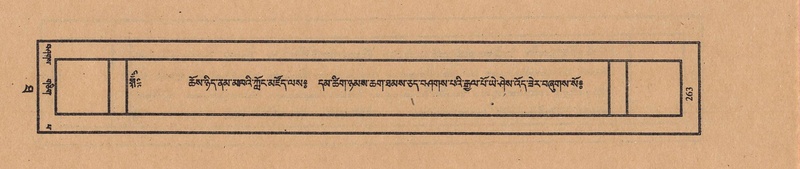 ཆོས་ཉིད་ནམ་མཁའི་ཀློང་མཛོད་ལས༔ དམ་ཚིག་ཉམས་ཆག་ཐམས་ཅད་བཤགས་པའི་རྒྱལ་པོ་ཡེ་ཤེས་འོད་ཟེར་བཞུགས་སོ༔
263